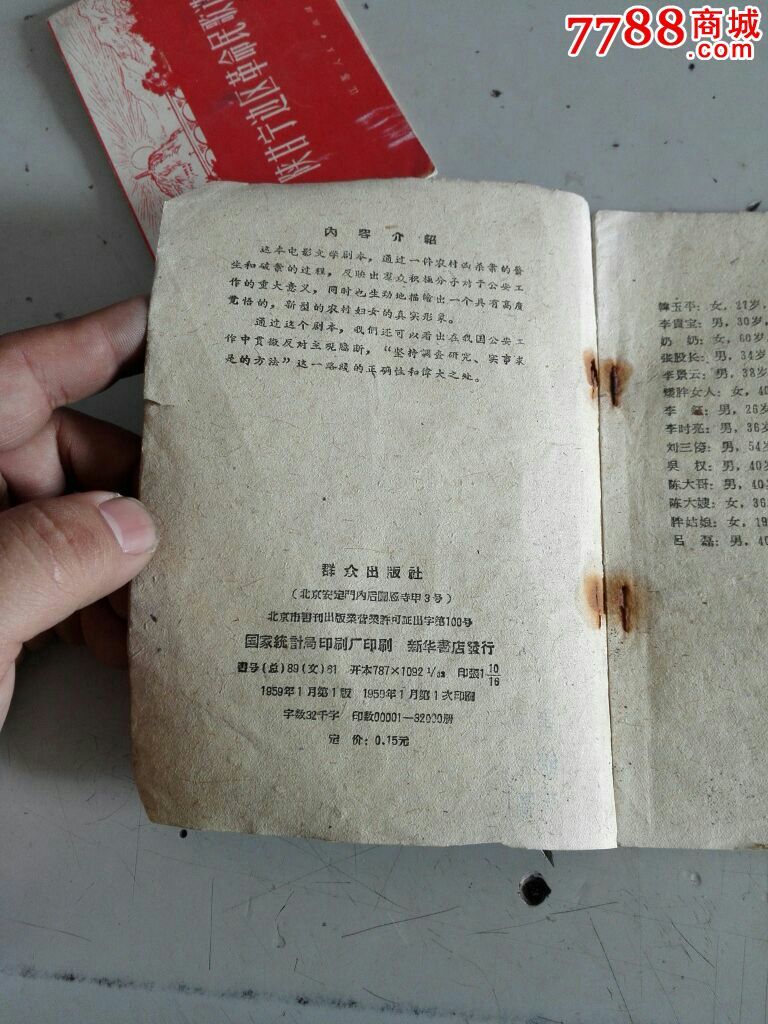 7788商城
.com
陕甘宁边区革命民歌
内容介紹
这本电影文学剧本，通过一件农村凶杀案的發
生和破案的过程，反映出羣众积极分子对于公安工
作的重大意义，同时也生动地描繪出一个具有高度
覚悟的，新型的农村妇女的真实形象。
通过这个剧本，我們还可以看出在我国公安工
作中貫徹反对主观臆断，“坚持調查研究、实事求
是的方法”这一路綫的正确性和偉大之处。
群众出版社
（北京安定門內后圓恩寺甲3号）
北京市書刊出版業营業許可証出字第100号
国家統計局印刷厂印刷 新华書店發行
書号(总)89(文)61 开本787×1092 1/32 印張1 10/16
1959年1月第1版 1959年1月第1次印刷
字数32千字 印数00001—32000册
定价：0.15元
韓玉平：女，27岁，
李貴宝：男，30岁，
奶奶：女，60岁
張股长：男，34岁
李景云：男，38岁
矮胖女人：女，40
李：男，26岁
李时亮：男，36岁
刘三：男，54岁
吳权：男，40岁
陈大哥：男，40岁
陈大嫂：女，36
胖姑娘：女，19
呂磊：男，40